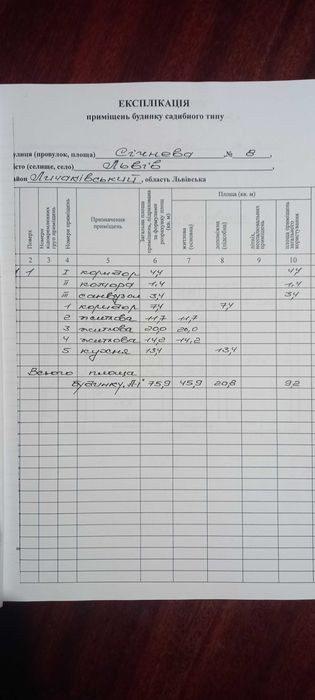 ЕКСПЛІКАЦІЯ
приміщень будинку садибного типу
улиця (провулок, площа) Січнева № 8,
істо (селище, село) Львів,
айон Личаківський, область Львівська
Поверх
Номери відокремлених груп приміщень
Номери приміщень
Призначення приміщень
Загальна площа приміщень, підрахована за формулами розрахунку площ (кв. м)
Площа (кв. м)
житлова (основна)
допоміжна (підсобна)
літніх, неопалювальних приміщень
площа приміщень загального користування
2 3 4 5 6 7 8 9 10
1 I коридор 4,4 4,4
II комора 1,4 1,4
III санвузол 3,4 3,4
1 коридор 7,4 7,4
2 житлова 11,7 11,7
3 житлова 20,0 20,0
4 житлова 14,2 14,2
5 кухня 13,4 13,4
Всього площа
будинку „А-1" 75,9 45,9 20,8 9,2